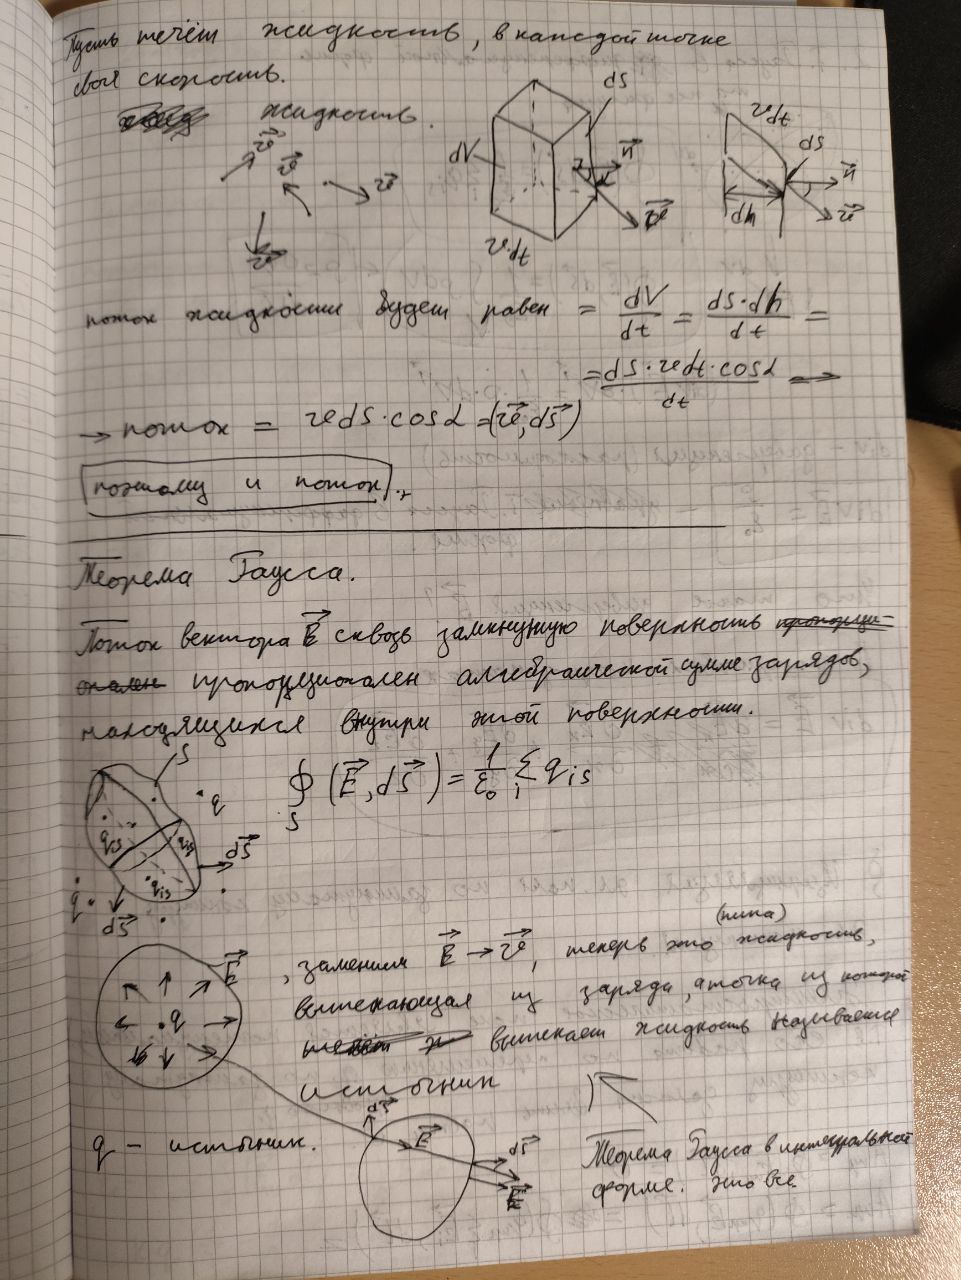 Пусть течёт жидкость, в каждой точке
своя скорость.
жидкость.
v⃗
v⃗
v⃗
v⃗
dV
dS
n⃗
α
v⃗
v·dt
v·dt
dS
n⃗
v⃗
dh
поток жидкости будет равен = dV/dt = dS·dh/dt =
= dS·vdt·cosα/dt →
→ поток = vdS·cosα = (v⃗, dS⃗)
поэтому и поток.
Теорема Гаусса.
Поток вектора E⃗ сквозь замкнутую поверхность
пропорционален алгебраической сумме зарядов,
находящихся внутри этой поверхности.
S
q
∮_S (E⃗, dS⃗) = 1/ε₀ Σ_i q_is
q_is
q_is
q_is
dS⃗
q
dS⃗
(типа)
E⃗
, заменим E⃗ → v⃗, теперь это жидкость,
вытекающая из заряда, а точка из которой
q
вытекает жидкость называется
источник
dS⃗
E⃗
dS⃗
E⃗
q – источник.
Теорема Гаусса в интегральной
форме. это все